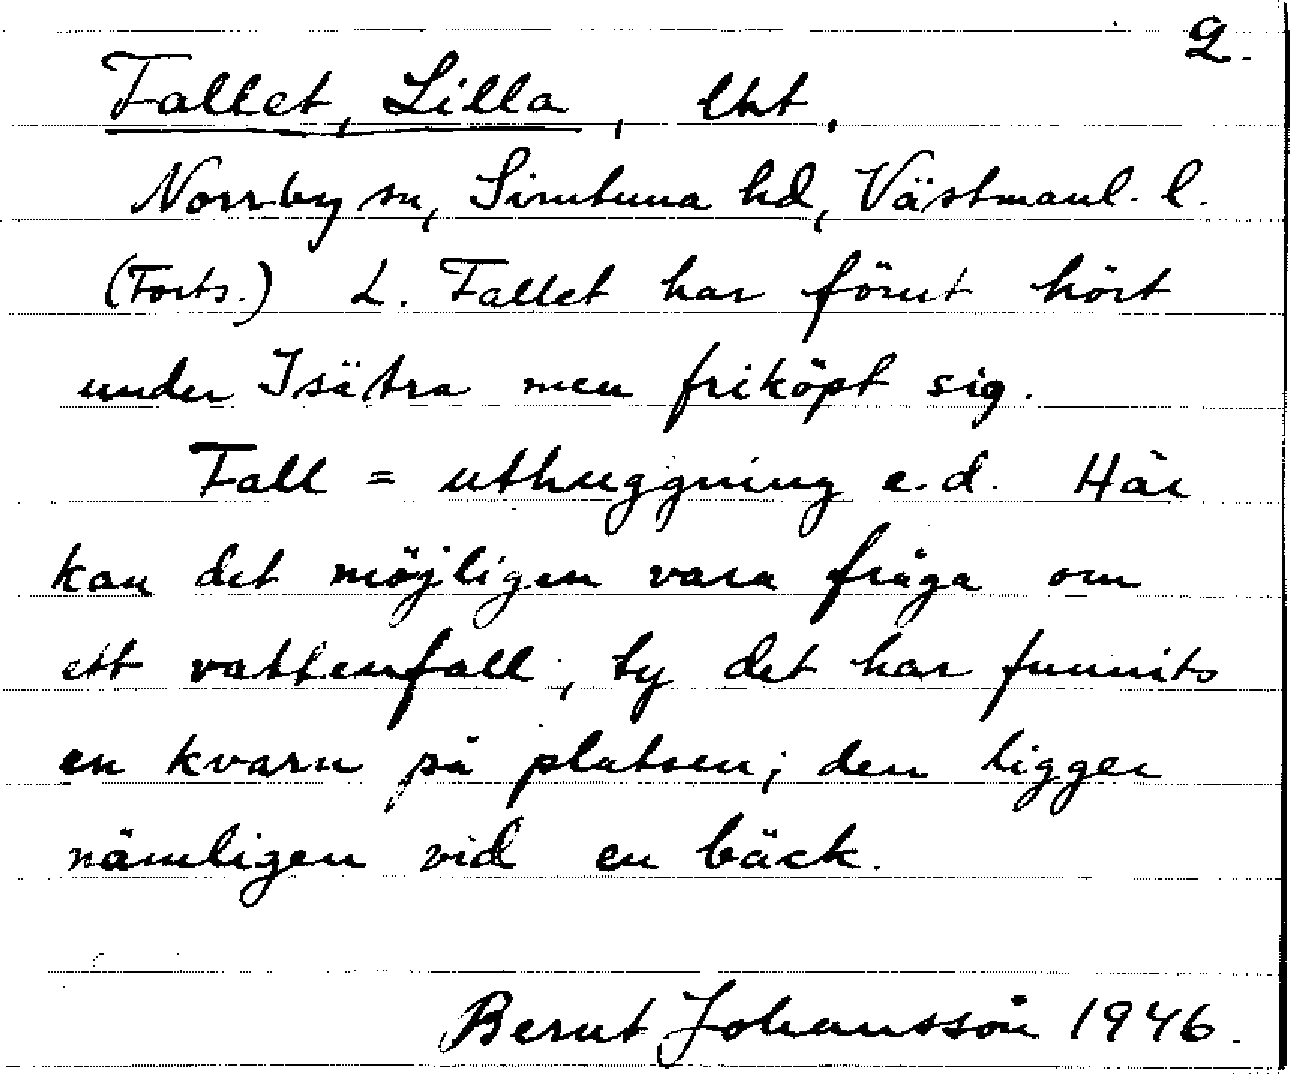 2.
Fallet, Lilla, lht,
Norrby sn, Simtuna hd, Västmanl. l.
(Forts.) L. Fallet har förut hört
under Isätra men friköpt sig.
Fall = uthuggning e.d. Här
kan det möjligen vara fråga om
ett vattenfall, ty det har funnits
en kvarn på platsen; den ligger
nämligen vid en bäck.
Bernt Johansson 1946.